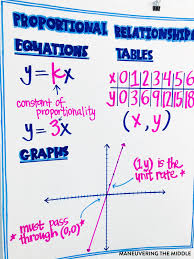 PROPORTIONAL RELATIONSHIP
EQUATIONS
y=kx
constant of
proportionality
y=3x
TABLES
x 0 1 2 3 4 5 6
y 0 3 6 9 12 15 18
(x, y)
GRAPHS
(1,y) is the
unit rate
*must pass
through (0,0)*
MANEUVERING THE MIDDLE